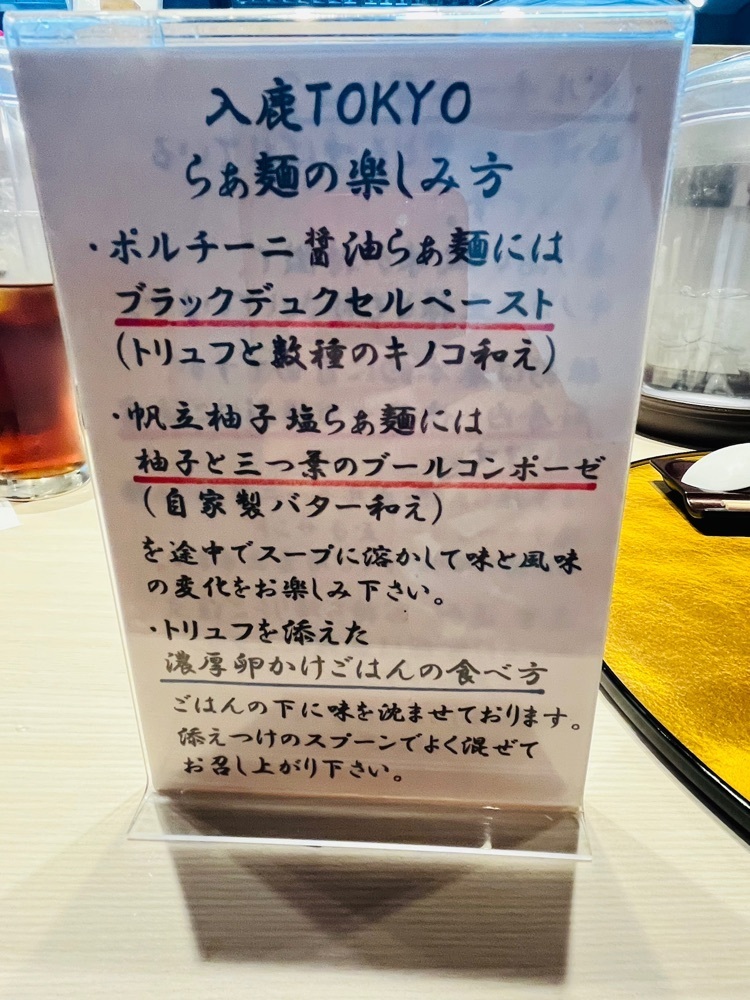 入鹿TOKYO
らぁ麺の楽しみ方
・ポルチーニ醤油らぁ麺には
ブラックデュクセルペースト
(トリュフと数種のキノコ和え)
・帆立柚子塩らぁ麺には
柚子と三つ葉のブールコンポーゼ
(自家製バター和え)
を途中でスープに溶かして味と風味
の変化をお楽しみ下さい。
・トリュフを添えた
濃厚卵かけごはんの食べ方
ごはんの下に味を沈ませております。
添えつけのスプーンでよく混ぜて
お召し上がり下さい。